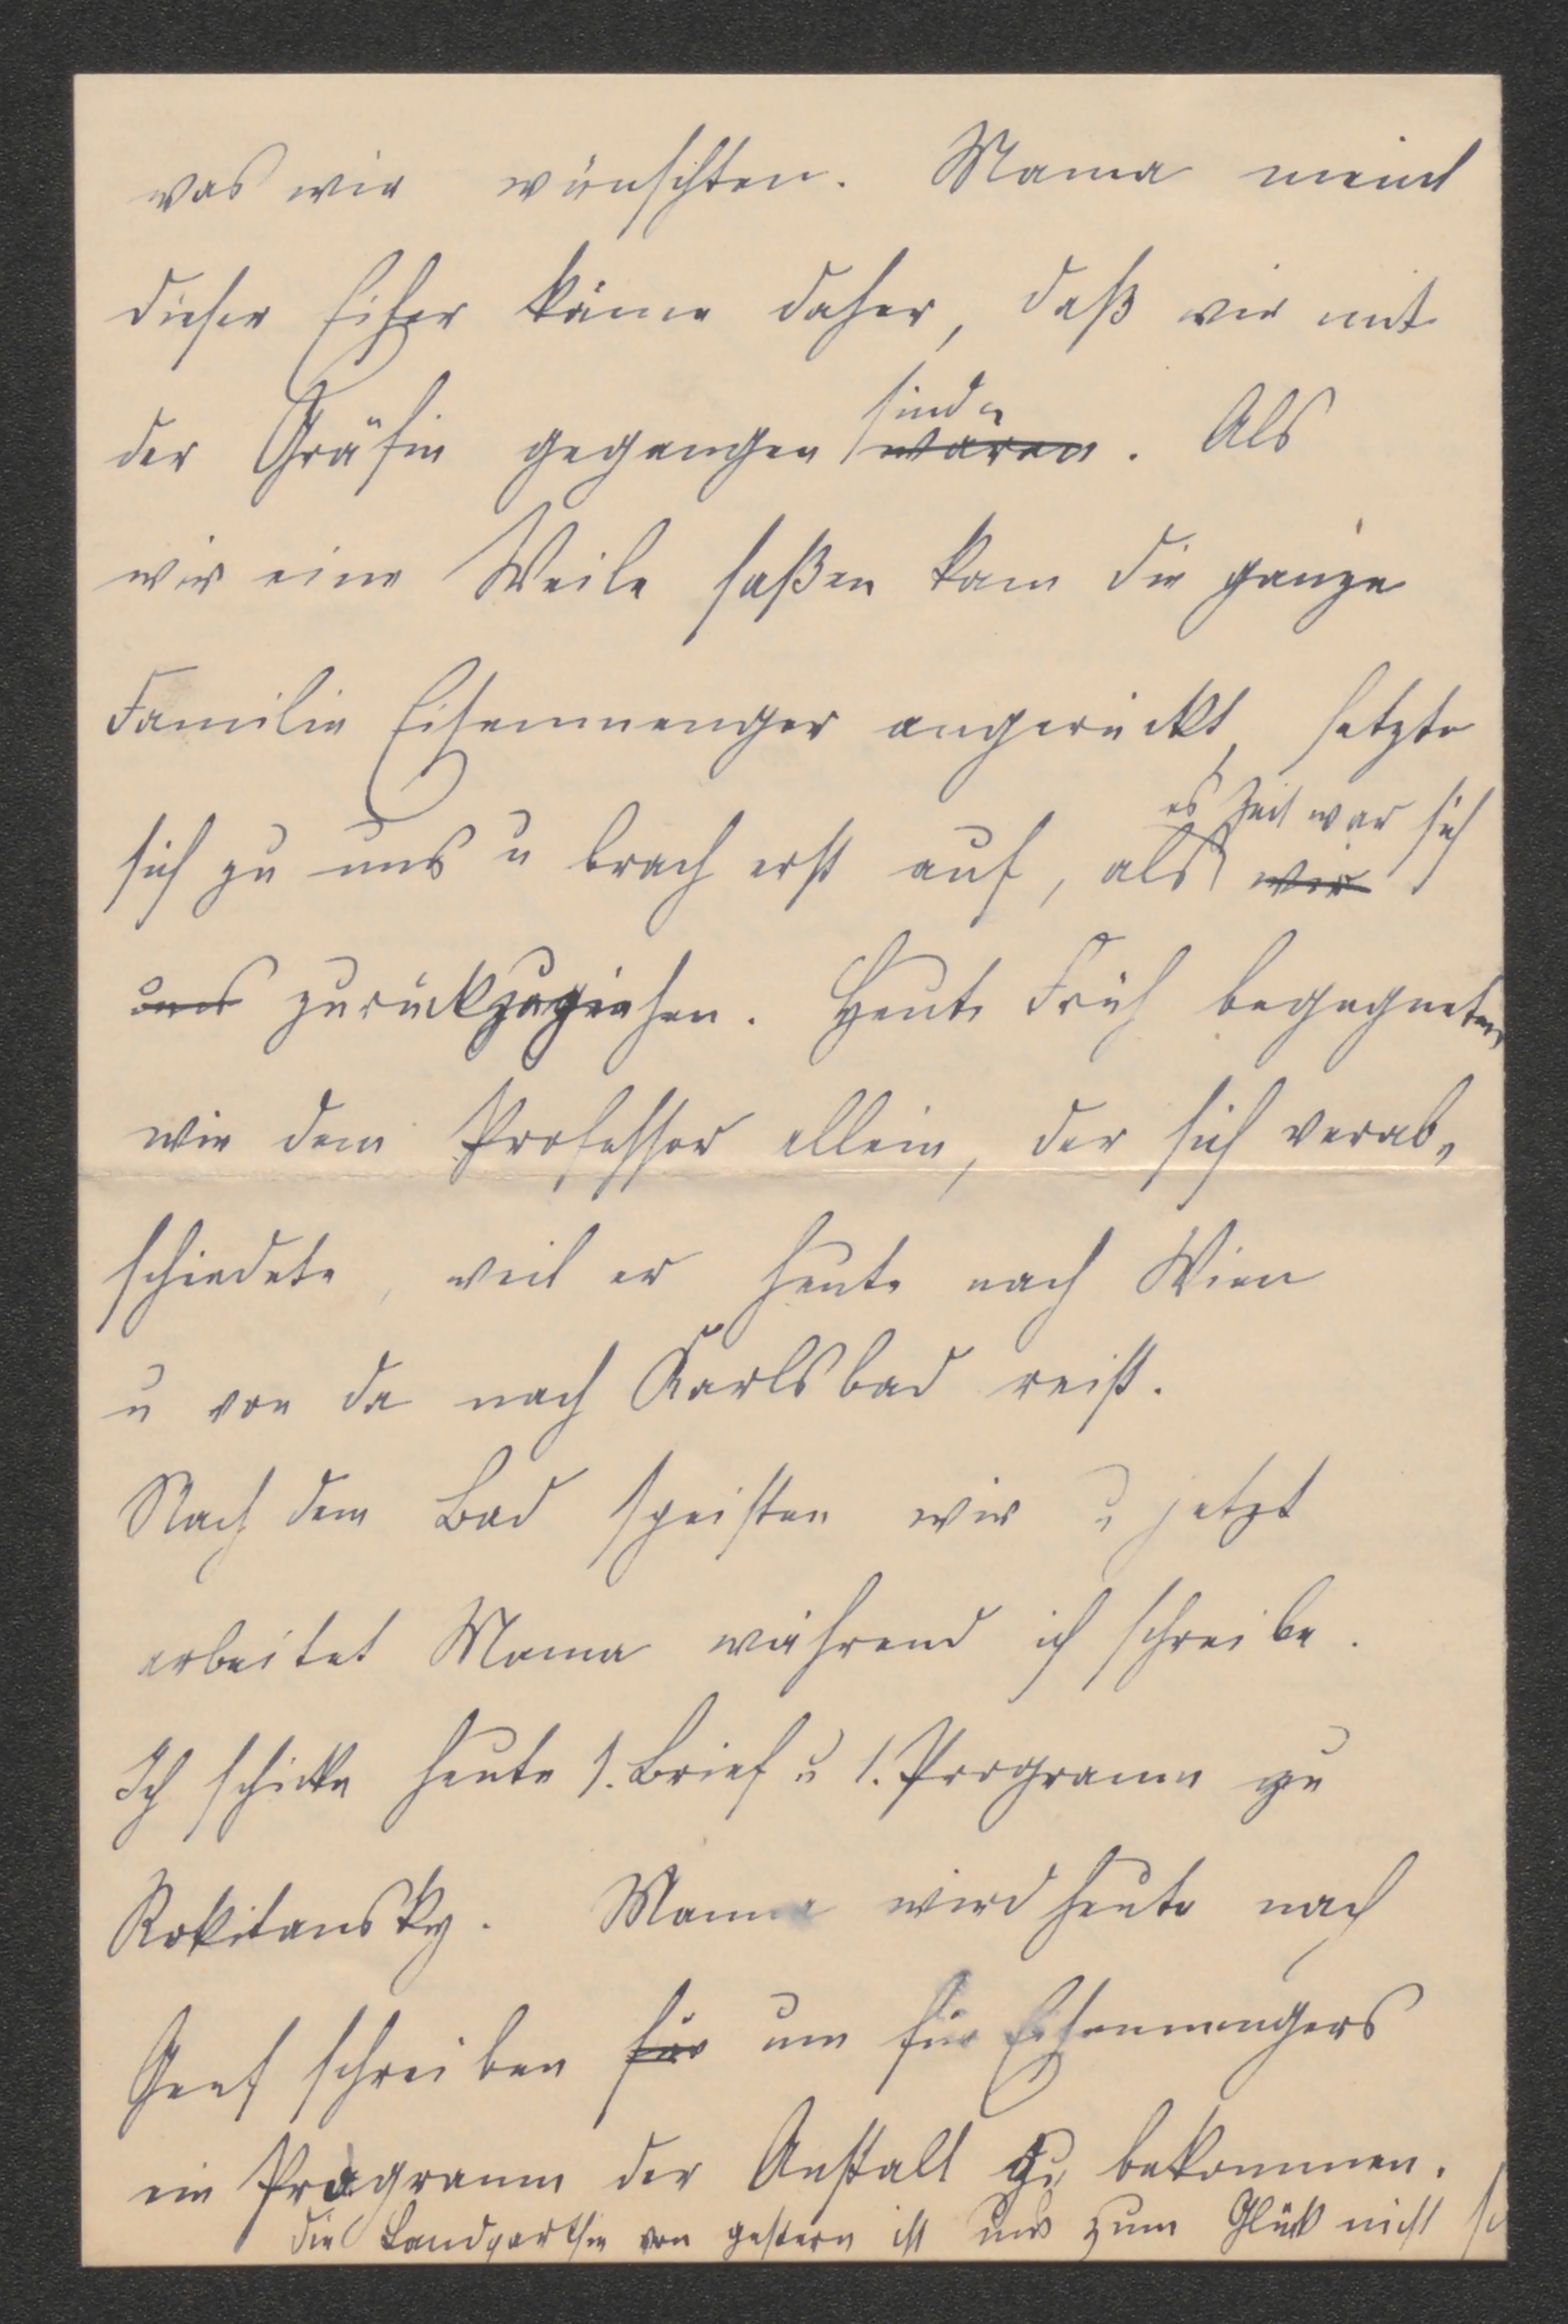 was wir wünschten. Mama meint
dieser Eifer käme daher, daß wir mit
der Gräfin gegangen waren. Als
sind
wir eine Weile saßen kam die ganze
Familie Eisenmenger angerückt, setzte
es Zeit war sich
sich zu uns u brach erst auf, als wir
uns zurückzuziehen. Heute Früh begegneten
wir dem Professor allein, der sich verab-
schiedete, weil er heute nach Wien
u von da nach Karlsbad reist.
Nach dem Bad speisten wir u jetzt
arbeitet Mama während ich schreibe.
Ich schicke heute 1. Brief u 1. Programm zu
Rokitansky. Mama wird heute nach
Genf schreiben für um für Eisenmengers
ein Programm der Anstalt zu bekommen.
Die Landparthie von gestern ist uns zum Glück nicht